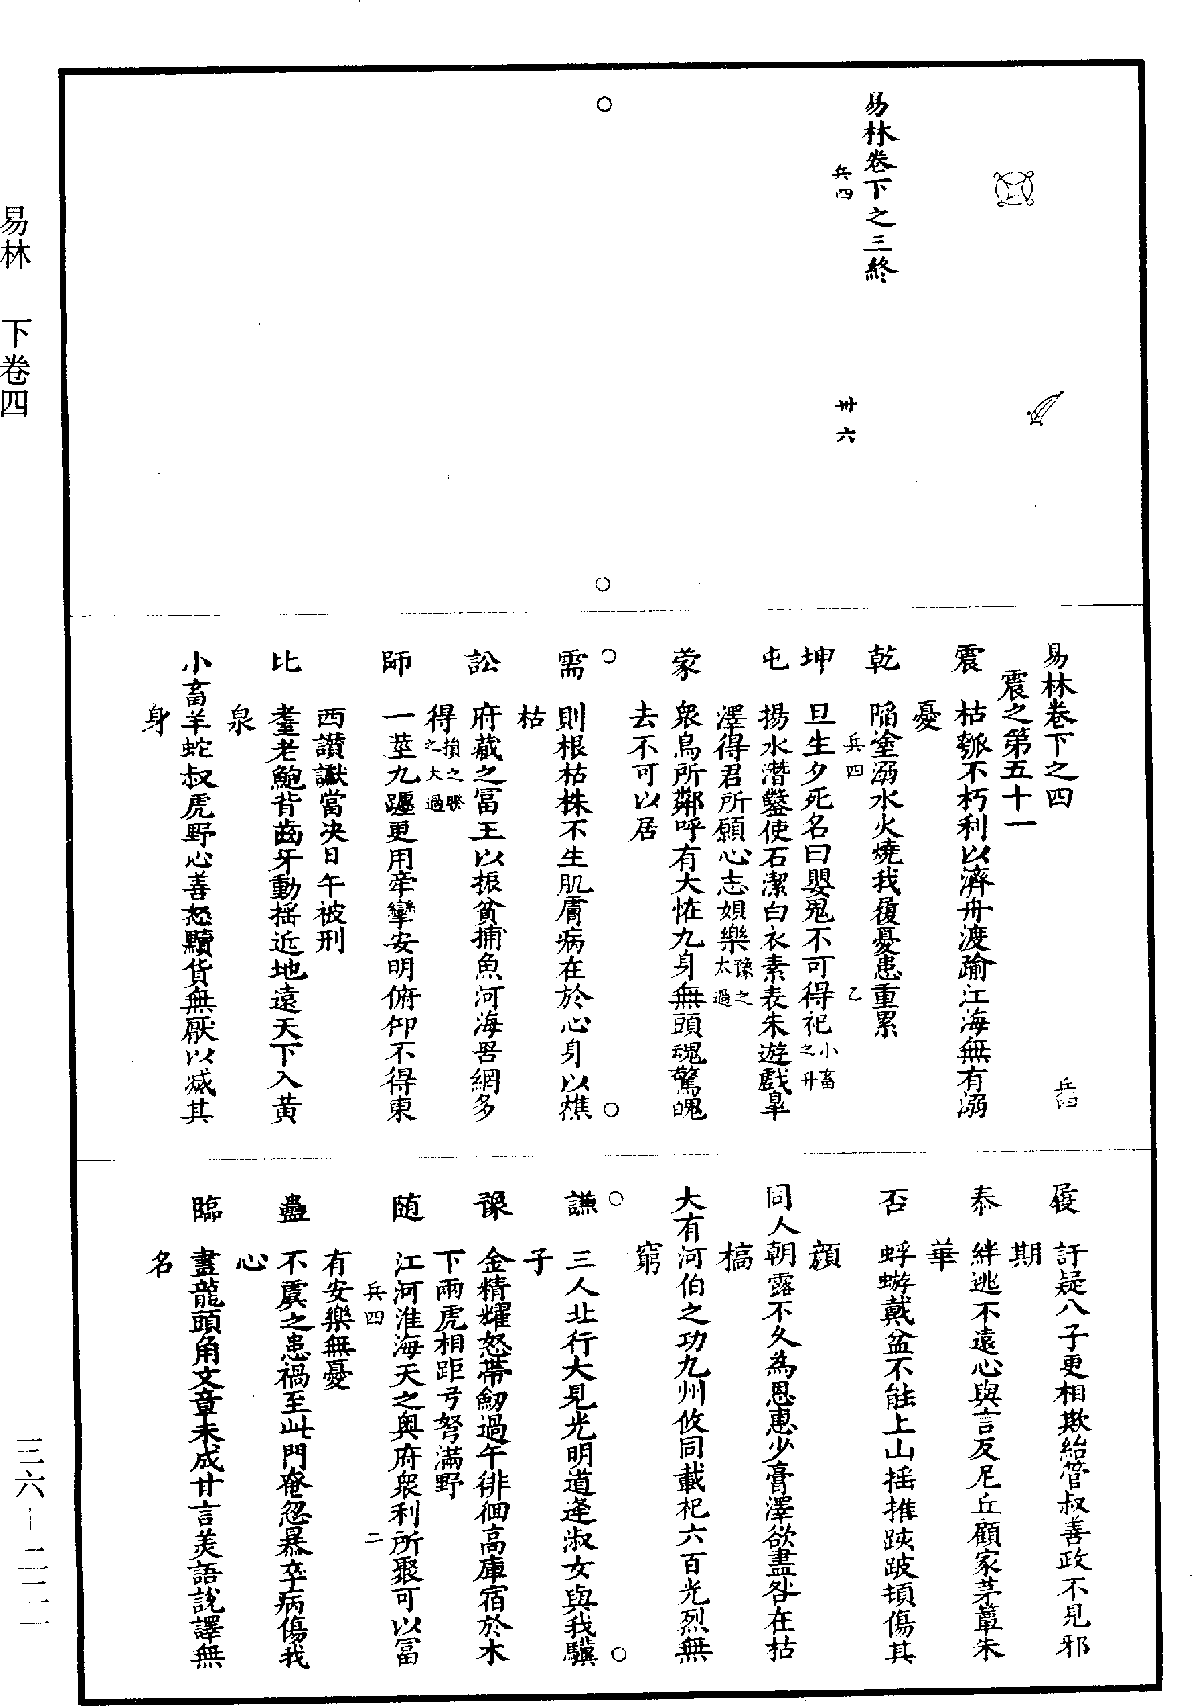 易林卷下之三終
兵四
卅六
易林卷下之四
兵四
震之第五十一
震　枯瓠不朽利以濟舟渡踰江海無有溺
憂
乾　陷塗溺水火燒我履憂患重累
兵四
乙
坤　旦生夕死名曰嬰鬼不可得祀小畜之升
屯　揚水潛鑿使石潔白衣素表朱遊戲皐
澤得君所願心志娛樂豫之太過
蒙　衆鳥所鄰呼有大恠九身無頭魂驚魄
去不可以居
需　則根枯株不生肌膚病在於心身以憔
枯
訟　府藏之冨王以振貧捕魚河海罟網多
得損之睽之大過
師　一莖九躔更用牽攣安明俯仰不得東
西讚讞當决日午被刑
比　耋老鮑背齒牙動揺近地遠天下入黄
泉
小畜羊蛇叔虎野心善怒黷貨無厭以滅其
身
履　訐疑八子更相欺紿管叔善政不見邪
期
泰　絆逃不遠心與言反尼丘顧家茅蕇朱
華
否　蜉蝣戴盆不能上山揺推跌跛頓傷其
顔
同人朝露不久為恩惠少膏澤欲盡咎在枯
槁
大有河伯之功九州攸同載祀六百光烈無
窮
謙　三人北行大見光明道逢淑女與我驥
子
豫　金精燿怒帶劒過午徘徊髙庫宿於木
下兩虎相距弓弩滿野
随　江河淮海天之奥府衆利所聚可以冨
兵四
二
有安樂無憂
蠱　不虞之患禍至此門奄忽暴卒病傷我
心
臨　畫龍頭角文章未成甘言美語説譯無
名
易林　下卷四
三六－二一二